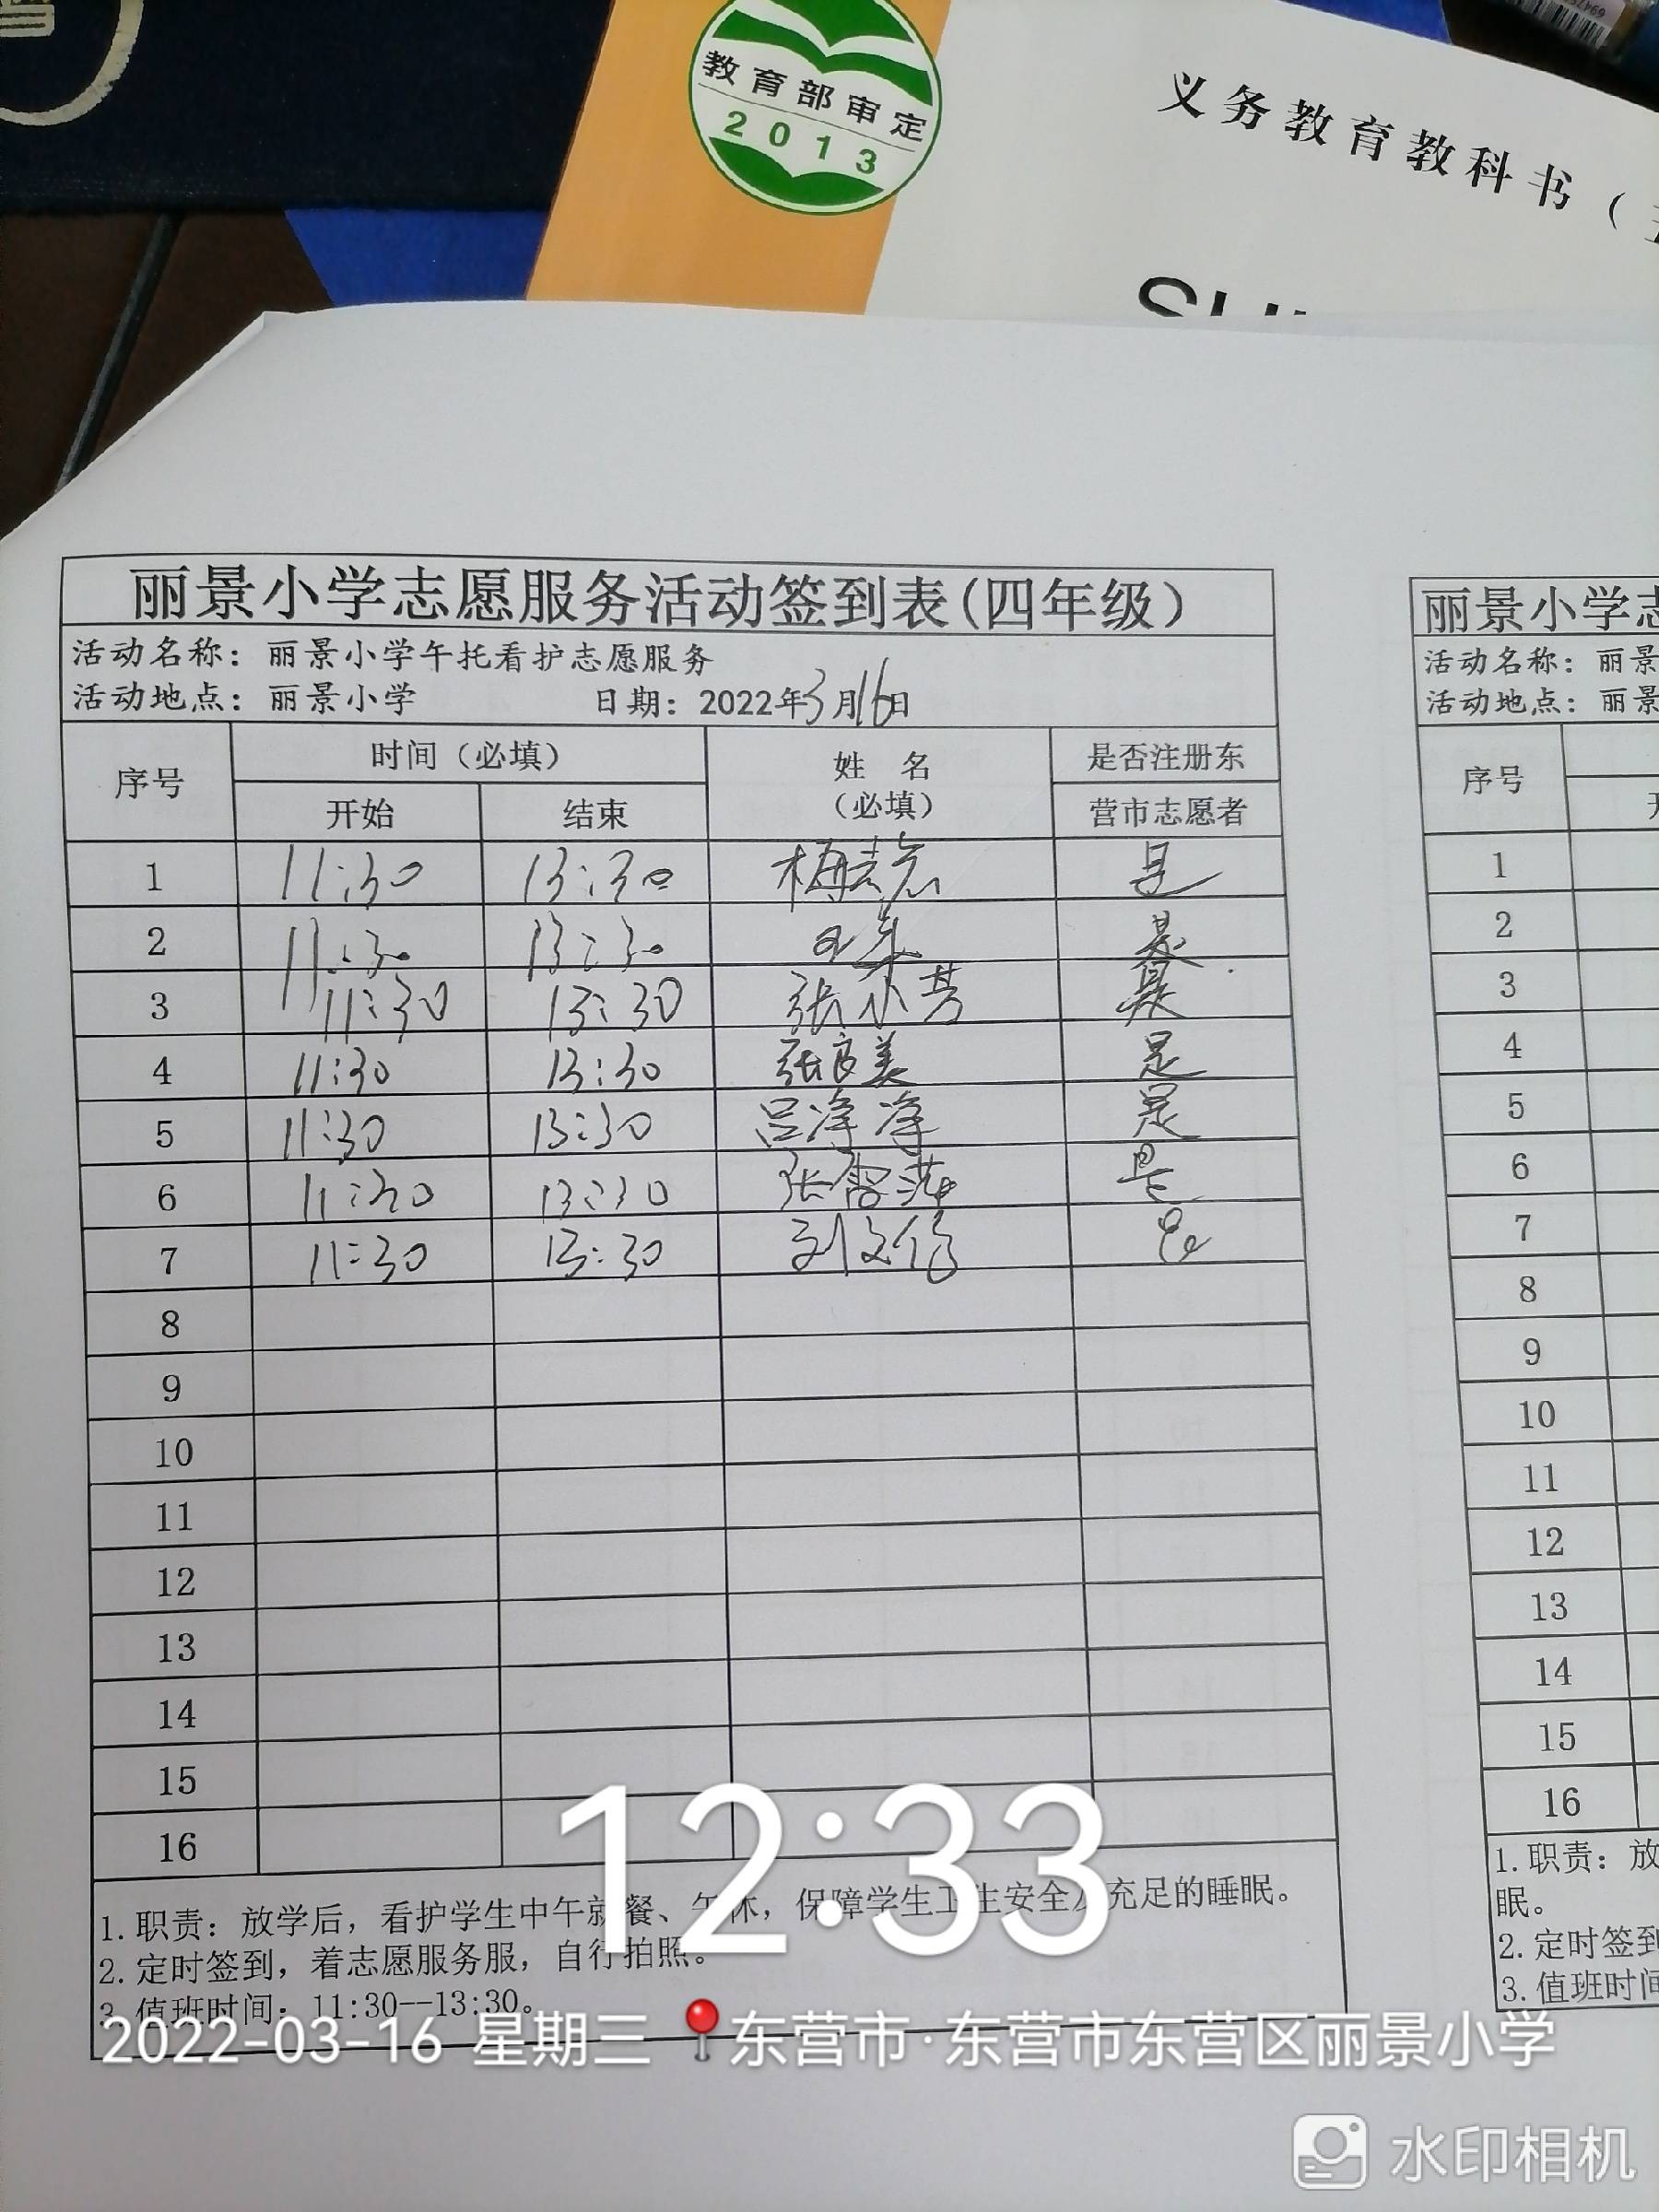 教育部审定
2013
义务教育教科书（
丽景小学志愿服务活动签到表(四年级）
活动名称：丽景小学午托看护志愿服务
活动地点：丽景小学 日期：2022年3月16日
序号 时间（必填） 姓 名（必填） 是否注册东营市志愿者
开始 结束
1 11:30 13:30 是
2 11:30 13:30 是
3 11:30 13:30 张小芳 是
4 11:30 13:30 张良美 是
5 11:30 13:30 吕净净 是
6 11:30 13:30 张雪萍 是
7 11:30 13:30 刘文信 是
8
9
10
11
12
13
14
15
16
1.职责：放学后，看护学生中午就餐、午休，保障学生卫生安全及充足的睡眠。
2.定时签到，着志愿服务服，自行拍照。
3.值班时间：11:30--13:30。
丽景小学志
活动名称：丽景
活动地点：丽景
序号
1
2
3
4
5
6
7
8
9
10
11
12
13
14
15
16
1.职责：放
眠。
2.定时签到
3.值班时间
12:33
2022-03-16 星期三 东营市·东营市东营区丽景小学
水印相机